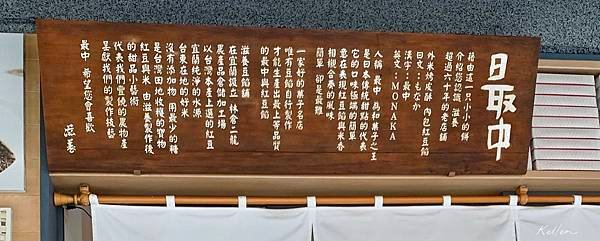 最中
藉由這一只小小的餅
介紹您認識 滋養
超過六十年的老店舖
外米烤皮酥 內包紅豆餡
日文：もなか
漢字：最中
英文：MONAKA
人稱 最中 為和菓子之王
是日本傳統甜點的代表
它的口味極端的簡單
意在表現紅豆餡與米香
相親合奏的風味
簡單 卻是最難
一家好的菓子名店
唯有豆餡自行製作
才能生產出最上等品質
的最中與紅豆餡
滋養豆餡舖
在宜蘭設立 林舍二龍
農產品食儲加工場
以台灣本產上選的紅豆
宜蘭純淨的水源
台東在地的好米
沒有添加物 用最少的糖
是台灣田地收穫的寶物
紅豆與米 由滋養製作後
的甜品小藝術
代表我們豐饒的農物產
呈獻我們的製作技藝
最中 希望您會喜歡
滋養
Kellen